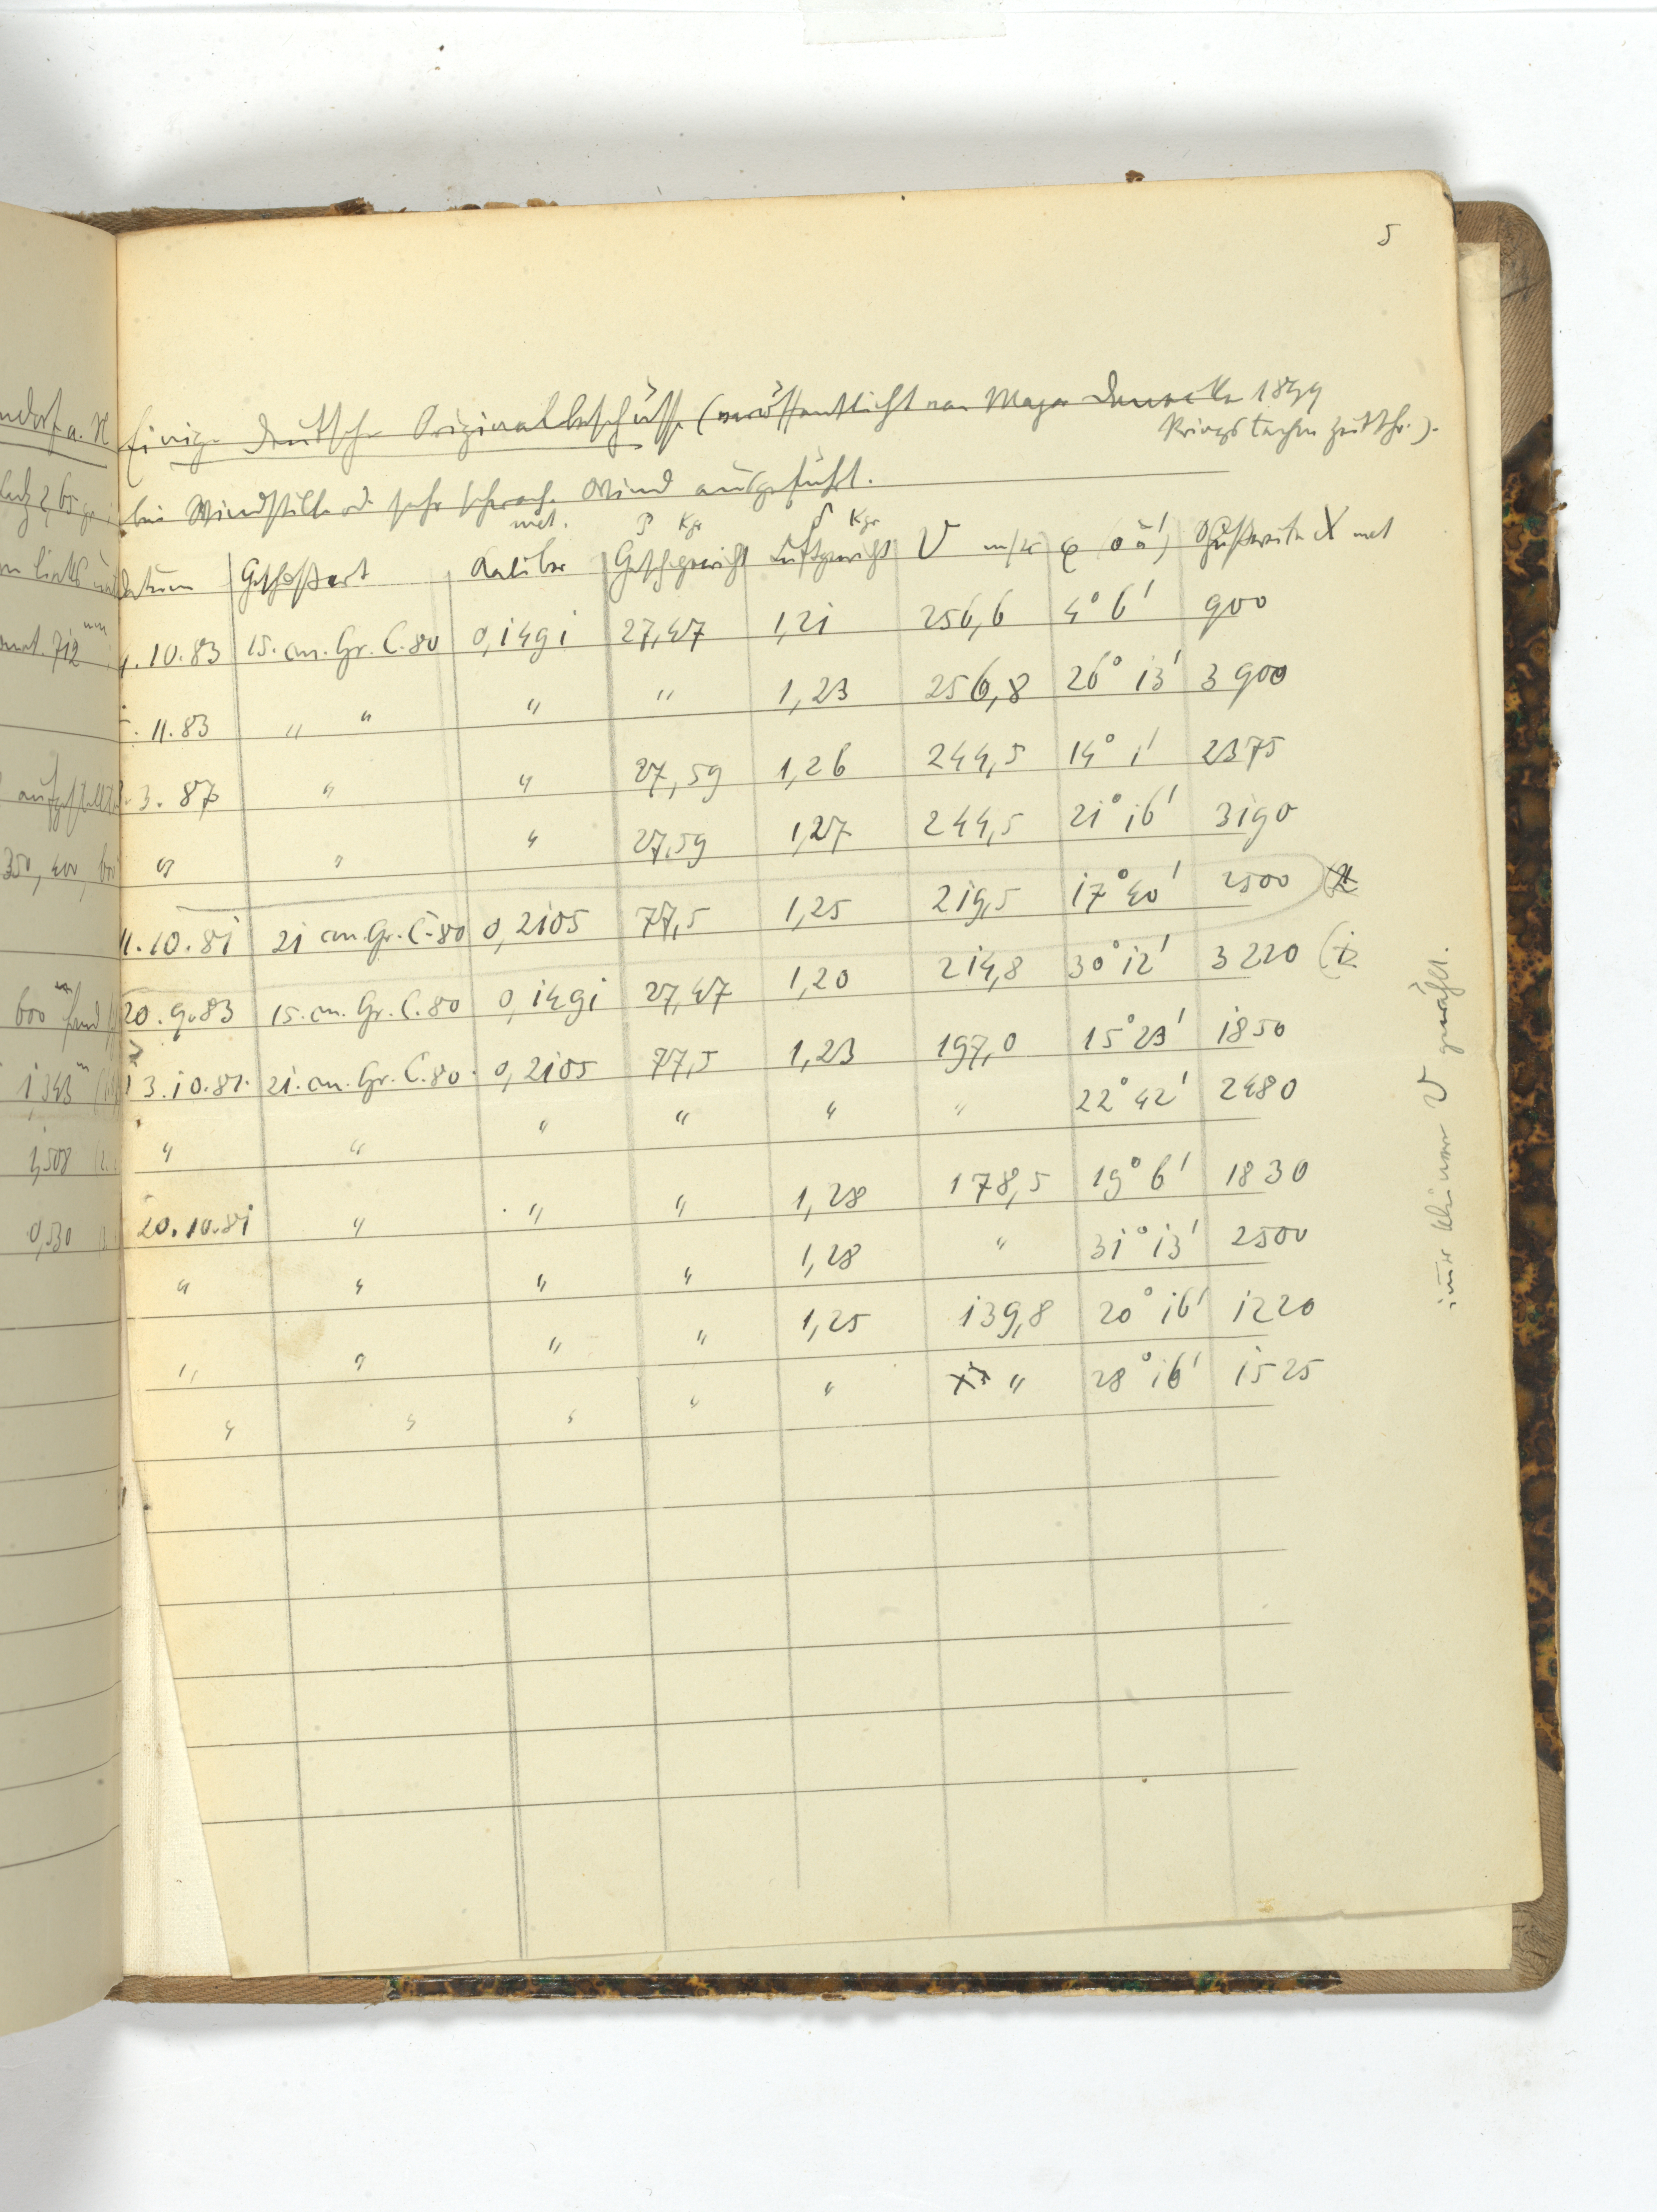 5
Einige deutsche Originalbeschüsse (veröffentlicht von Major 1899
Kriegstechn Zeitschr.).
bei Windstille od. sehr schwach. Wind ausgeführt.
Datum Geschoßart Kaliber met. Geschgewicht P Kgr Luftgewicht δ Kgr V m/sec φ (0 à ') Schußweite X met
.10.83 15. cm. Gr. C. 80 0,1491 27,47 1,21 256,6 4° 6' 900
.11.83 " " " " 1,23 256,8 26° 13' 3900
.3.87 " " 27,59 1,26 244,5 14° 1' 2375
" " " 27,59 1,27 244,5 21° 16' 3190
11.10.81 21 cm. Gr. C. 80 0,2105 77,5 1,25 219,5 17° 40' 2500
20.9.83 15. cm. Gr. C. 80 0,1491 27,47 1,20 214,8 30° 12' 3220
13.10.81. 21. cm. Gr. C. 80. 0,2105 77,5 1,23 197,0 15° 23' 1850
" " " " " " 22° 42' 2480
20.10.81 " " " 1,28 178,5 19° 6' 1830
" " " " 1,28 " 31° 13' 2500
" " " " 1,25 139,8 20° 16' 1220
" " " " " " 28° 16' 1525
immer kleineres V gewählt.
ndorf a. N
712 mm
350, 400, 600
600 m
1343 m
1,508
0,530